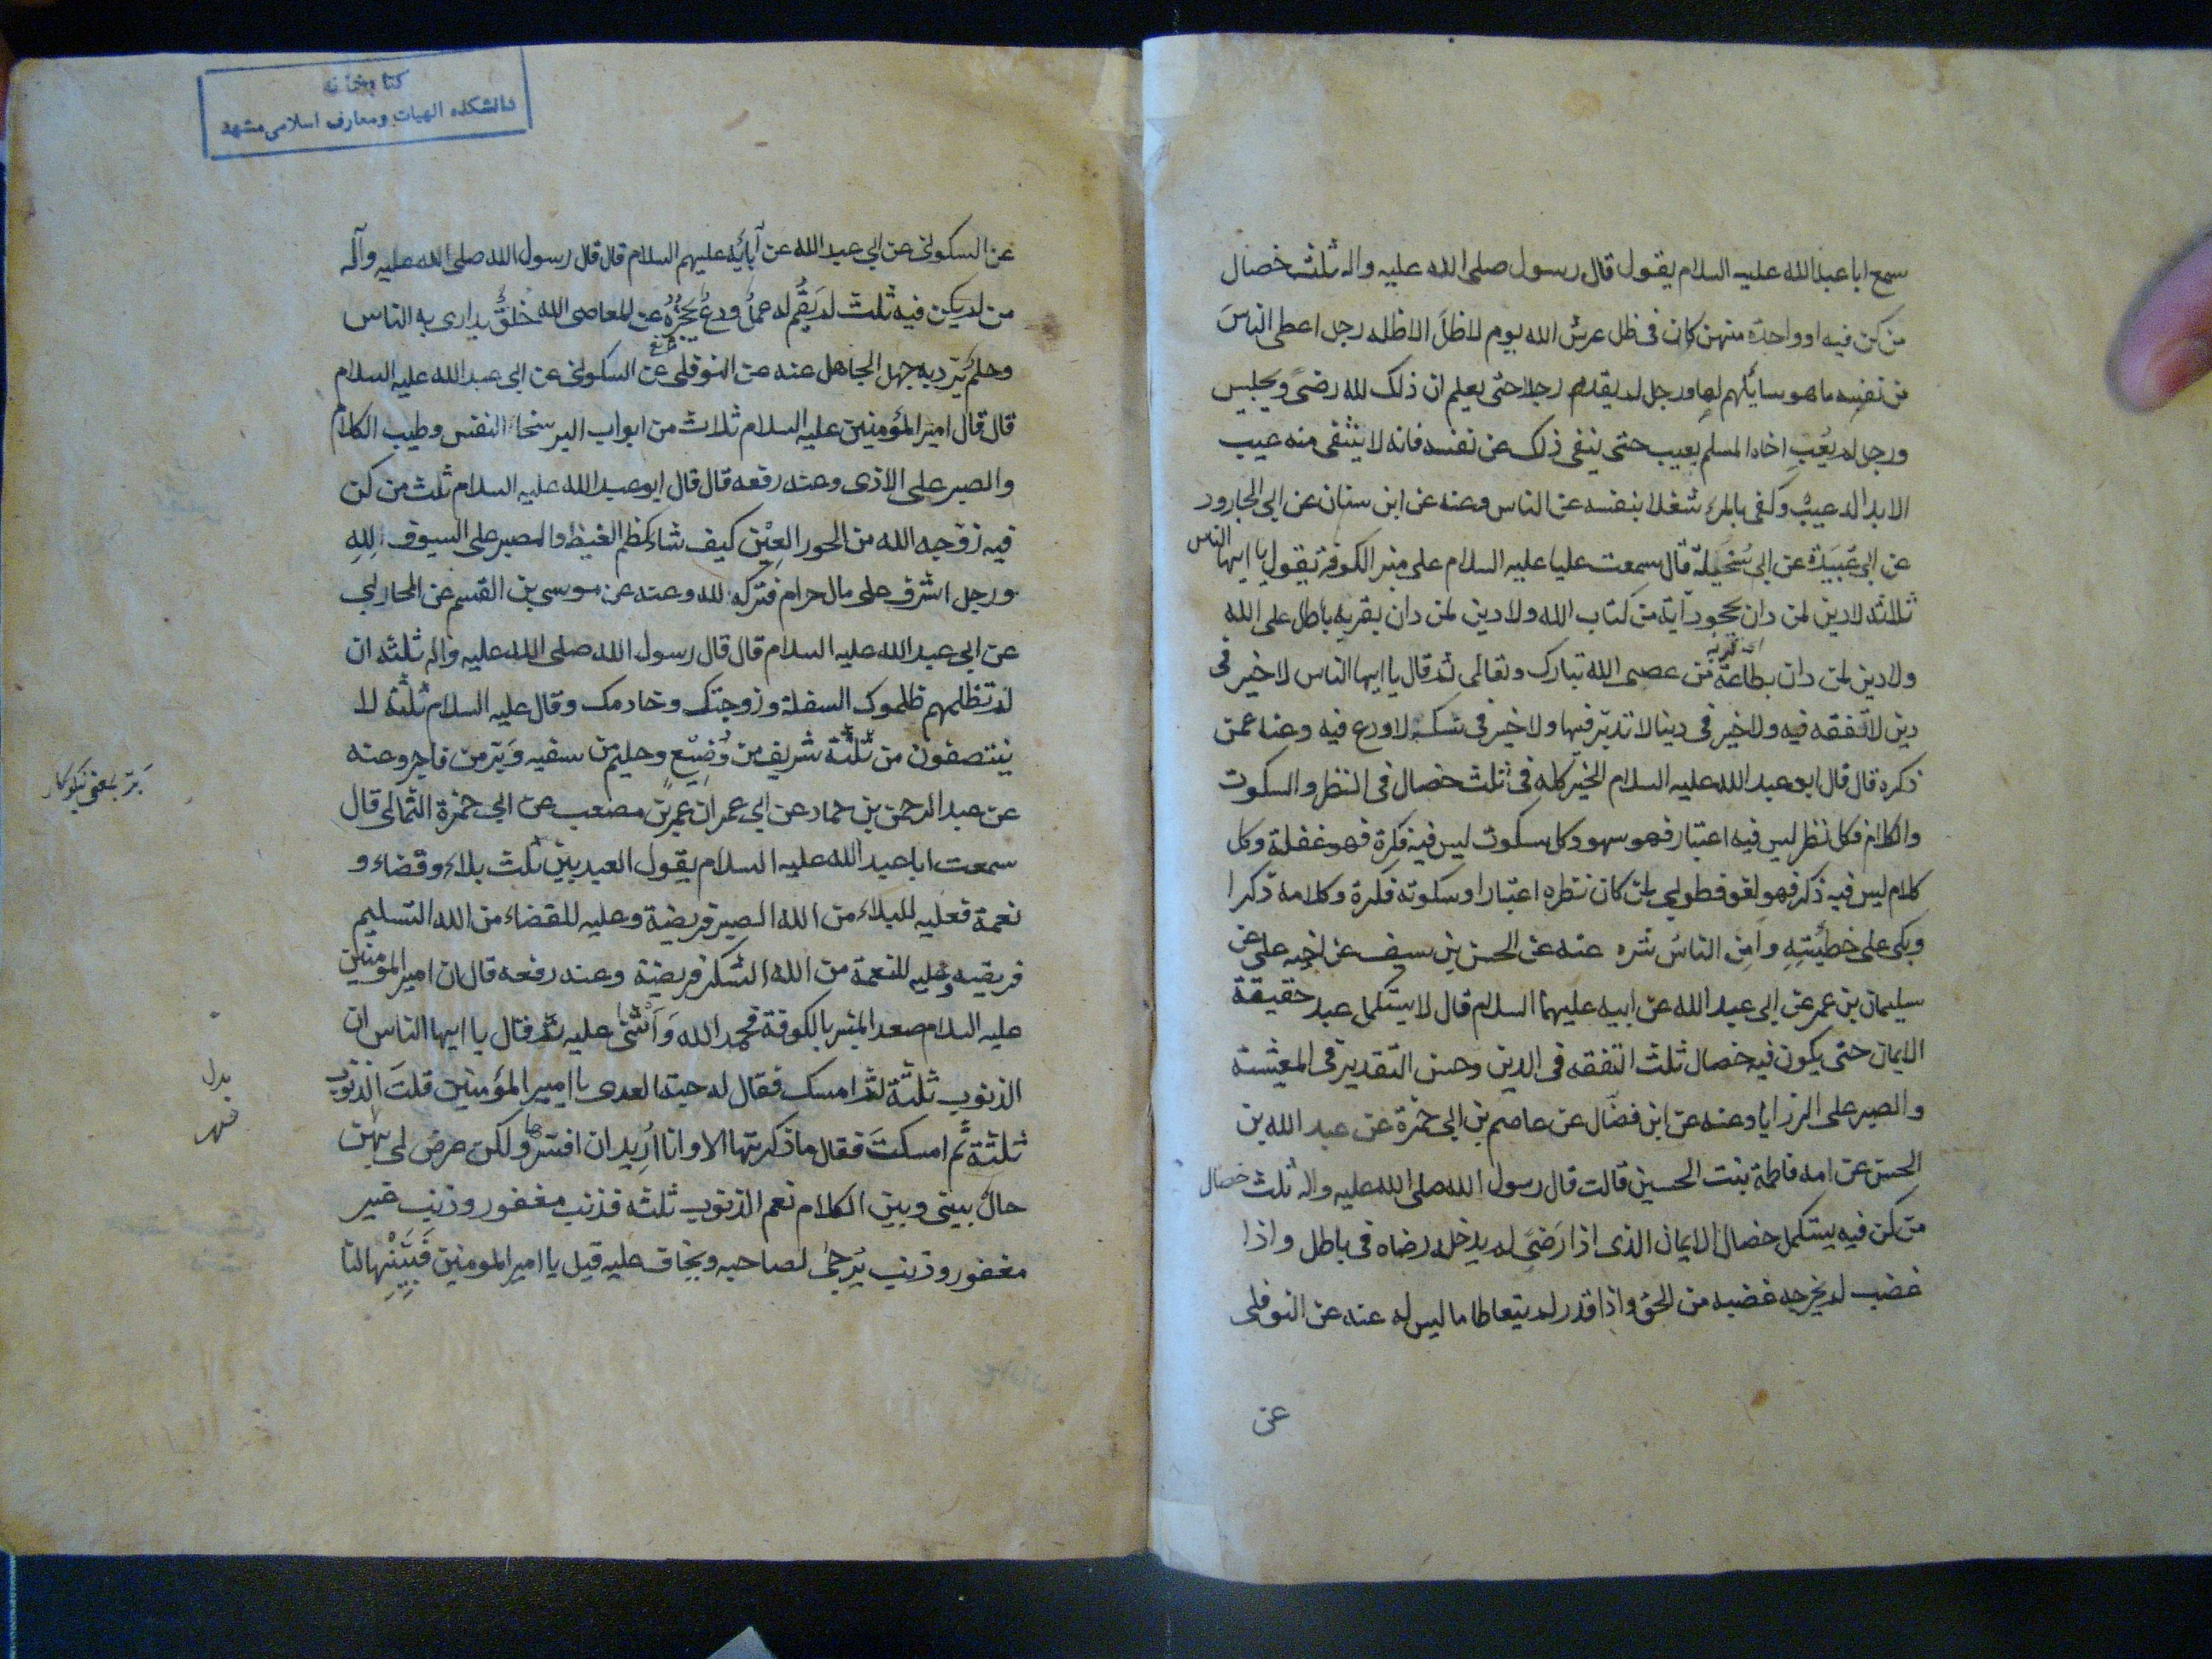 سمع ابا عبدالله عليه السلام يقول قال رسول صلى الله عليه واله ثلث خصال
من كن فيه او واحدة منهن كان فى ظل عرش الله يوم لا ظل الا ظله رجل اعطى الناس
من نفسه ما هو سايلهم لها ورجل لم يقدم رجلا حتى يعلم ان ذلك لله رضى ويجليس
ورجل لم يعب اخاه المسلم بعيب حتى ينفى ذلك عن نفسه فانه لا ينتفى منه عيب
الا بدا له عيب وكفى بالمرء شغلا بنفسه عن الناس وعنه عن ابن سنان عن ابى الجارود
عن ابى عبيدة عن ابى سخيلة قال سمعت عليا عليه السلام على منبر الكوفة يقول يا ايها الناس
ثلاثه لا دين لمن دان بجحود آية من كتاب الله ولا دين لمن دان بفريه باطل على الله
ولا دين لمن دان بطاعة من عصى الله تبارك وتعالى ثم قال يا ايها الناس لا خير فى
دين لا تفقه فيه ولا خير فى دينا لا تدبر فيها ولا خير فى نسك لا ورع فيه وعنه عمن
ذكره قال قال ابو عبد الله عليه السلام الخير كله فى ثلث خصال فى النظر والسكوت
والكلام فكل نظر ليس فيه اعتبار فهو سهو وكل سكوت ليس فيه فكرة فهو غفلة وكل
كلام ليس فيه ذكر فهو لغو فطوبى لمن كان نظره اعتبارا وسكوته فكرة وكلامه ذكرا
وبكى على خطيئته وامن الناس شره عنه عن الحسن بن سيف عن اخيه على عن
سليمان بن عمر عن ابى عبد الله عن ابيه عليهما السلام قال لا يستكمل عبد حقيقة
الايمان حتى يكون فيه خصال ثلث التفقه فى الدين وحسن التقدير فى المعيشة
والصبر على الرزايا وعنه عن ابن فضال عن عاصم بن ابى حمزة عن عبد الله بن
الحسن عن امه فاطمة بنت الحسين قالت قال رسول الله صلى الله عليه واله ثلث خصال
من كن فيه يستكمل خصال الايمان الذى اذا رضى لم يدخله رضاه فى باطل واذا
غضب لم يخرجه غضبه من الحق واذا قدر لم يتعاطا ما ليس له عنه عن النوفلى
عن
كتابخانه
دانشكده الهيات ومعارف اسلامى مشهد
عن السكونى عن ابى عبد الله عن آبائه عليهم السلام قال قال رسول الله صلى الله عليه وآله
من لم يكن فيه ثلث لم يقم له عمل ورع يحجزه عن المعاصى الله خلق يدارى به الناس
وحلم يرد به جهل الجاهل عنه عن النوفلى عن السكونى عن ابى عبد الله عليه السلام
قال قال امير المؤمنين عليه السلام ثلاث من ابواب البر سخاء النفس وطيب الكلام
والصبر على الاذى وعنه رفعه قال قال ابو عبد الله عليه السلام ثلث من كن
فيه زوجه الله من الحور العين كيف شاء كظم الغيظ والصبر على السيوف لله
ورجل اشرف على مال حرام فتركه لله وعنه عن موسى بن القسم عن المحاربى
عن ابى عبد الله عليه السلام قال قال رسول الله صلى الله عليه واله ثلثة ان
لم تظلمهم ظلموك السفلة وزوجتك وخادمك وقال عليه السلام ثلثة لا
ينتصفون من ثلثة شريف من وضيع وحليم من سفيه وبر من فاجر وعنه
بر بمعنى نيكوكار
عن عبد الرحمن بن حماد عن ابى عمران عمر بن مصعب عن ابى حمزة الثمالى قال
سمعت ابا عبد الله عليه السلام يقول العبد بين ثلث بلاء وقضاء و
نعمة فعليه للبلاء من الله الصبر فريضة وعليه للقضاء من الله التسليم
فريضه وعليه للنعمة من الله الشكر فريضة وعنه رفعه قال ان امير المومنين
عليه السلام صعد المنبر بالكوفة فحمد الله واثنى عليه ثم قال يا ايها الناس ان
الذنوب ثلثة ثم امسك فقال له حبة العدى يا امير المؤمنين قلت الذنوب
ثلثة ثم امسكت فقال ما ذكرتها الا وانا اريد ان افسرها ولكن عرض لى بهر
حال بينى وبين الكلام نعم الذنوب ثلثة فذنب مغفور وذنب غير
مغفور وذنب يرجى لصاحبه ويخاف عليه قيل يا امير المومنين فبينها لنا